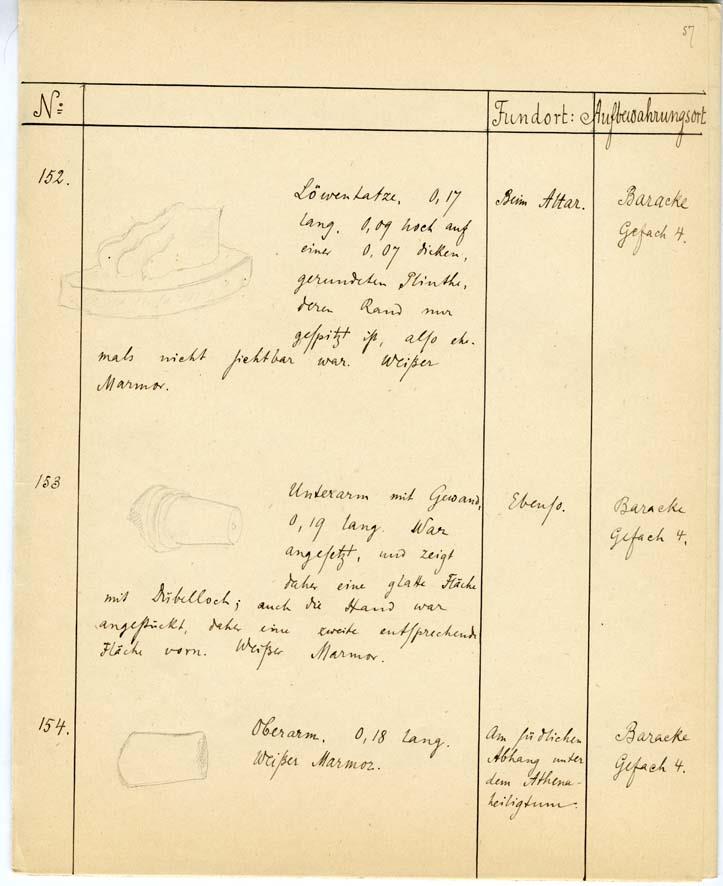 57
No: Fundort: Aufbewahrungsort
152.
Löwentatze. 0,17
lang. 0,09 hoch auf
einer 0,07 dicken,
gerundeten Plinthe,
deren Rand nur
gespitzt ist, also ehe-
mals nicht sichtbar war. Weißer
Marmor.
Beim Altar.
Baracke
Gefach 4.
153
Unterarm mit Gewand,
0,19 lang. War
angesetzt, und zeigt
daher eine glatte Fläche
mit Dübelloch; auch die Hand war
angestückt, daher eine zweite entsprechende
Fläche vorn. Weißer Marmor.
Ebenso.
Baracke
Gefach 4.
154.
Oberarm. 0,18 lang.
Weißer Marmor.
Am südlichen
Abhang unter
dem Athena-
heiligtum.
Baracke
Gefach 4.